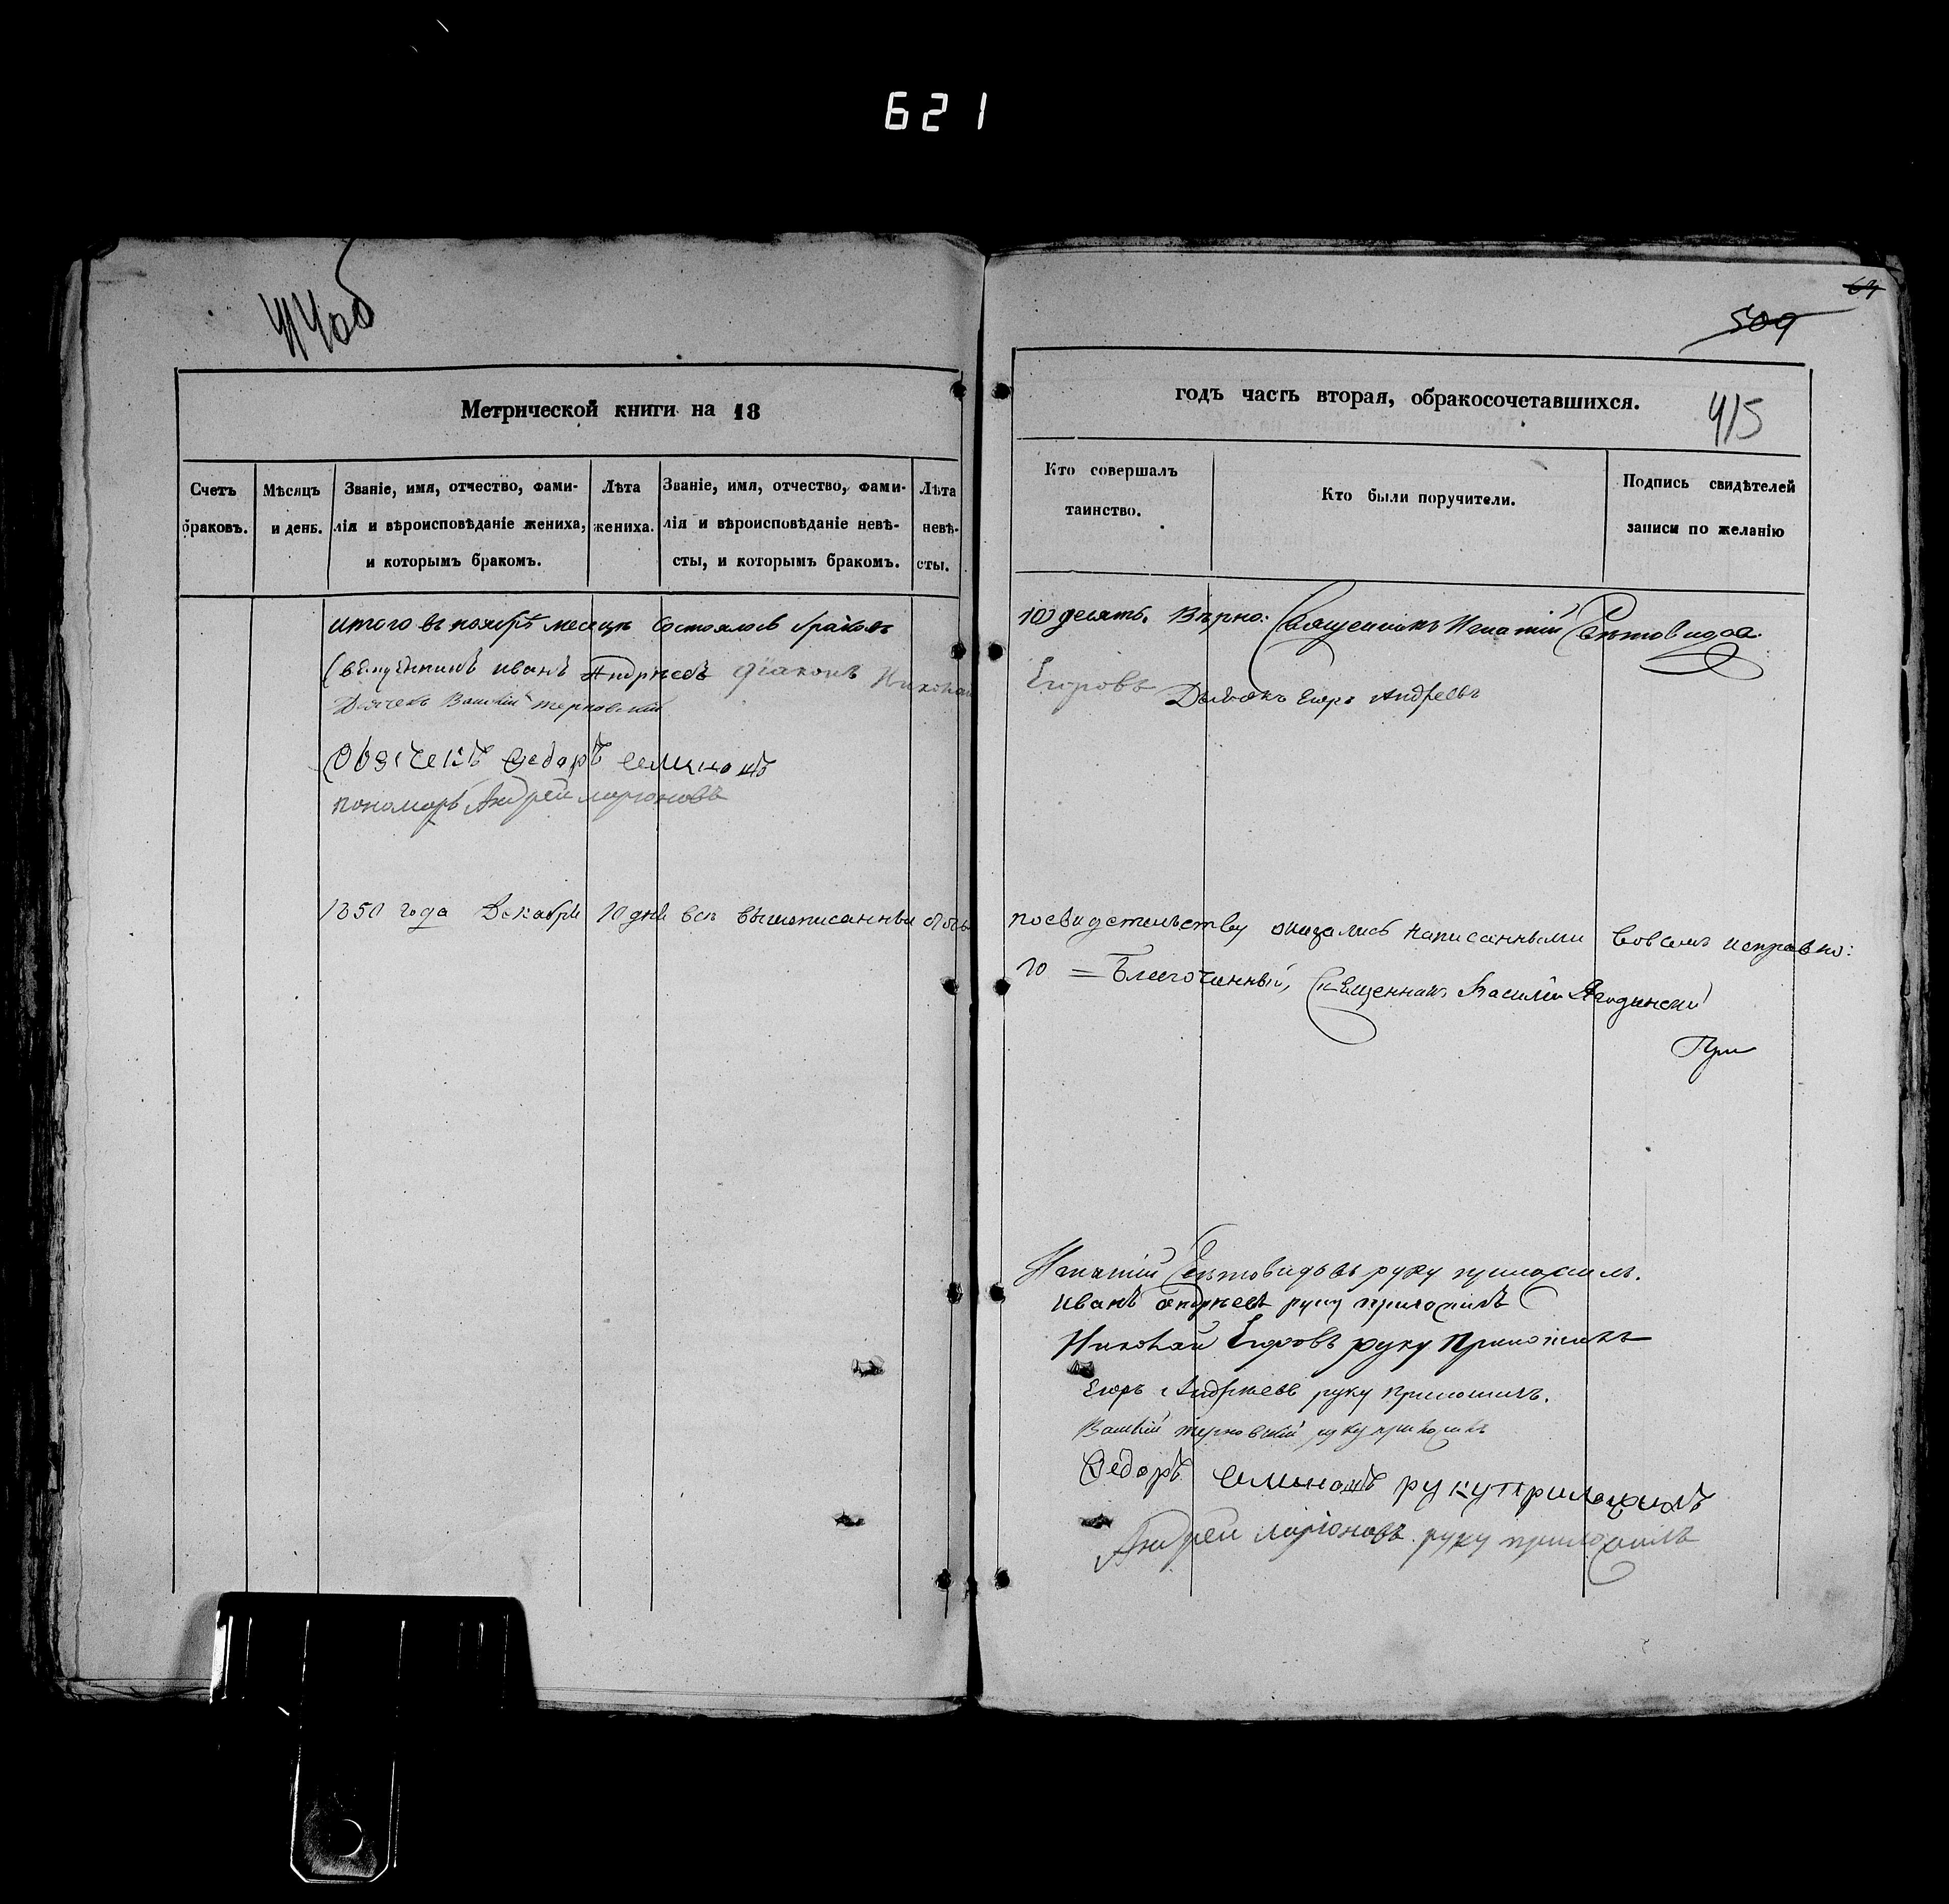 621
414об
64
509
Метрической книги на 18
годъ часть вторая, обракосочетавшихся.
415
Счетъ браковъ.
Мѣсяцъ и день.
Званіе, имя, отчество, фами-
лія и вѣроисповѣданіе жениха,
и которымъ бракомъ.
Лѣта жениха.
Званіе, имя, отчество, фами-
лія и вѣроисповѣданіе невѣ-
сты, и которымъ бракомъ.
Лѣта невѣ-
сты.
Кто совершалъ
таинство.
Кто были поручители.
Подпись свидѣтелей
записи по желанію
итого въ ноябрѣ месяцѣ состоялось браковъ
10) десять. Вѣрно: Священникъ Игнатій Свѣтовидовъ
Священникъ иванъ Андрѣевъ діаконъ Николай
Егоровъ Дьячокъ Егоръ Андреевъ
Дьячекъ Василій Терновскій
Дьячекъ Федоръ
пономарь Андрей ларіоновъ
1850 года Декабря 10 дня всѣ вышеписанныя
посвидетельству оказались написанными вовсемъ исправно:
Благочинный, Священникъ Василій Ягодинскій
Игнатій Свѣтовидовъ руку приложилъ.
иванъ андрѣевъ руку приложилъ
Николай Егоровъ руку приложилъ
Егоръ Андрѣевъ руку приложилъ.
Василій терновскій руку приложилъ
Федоръ руку приложилъ
Андрей ларіоновъ руку приложилъ